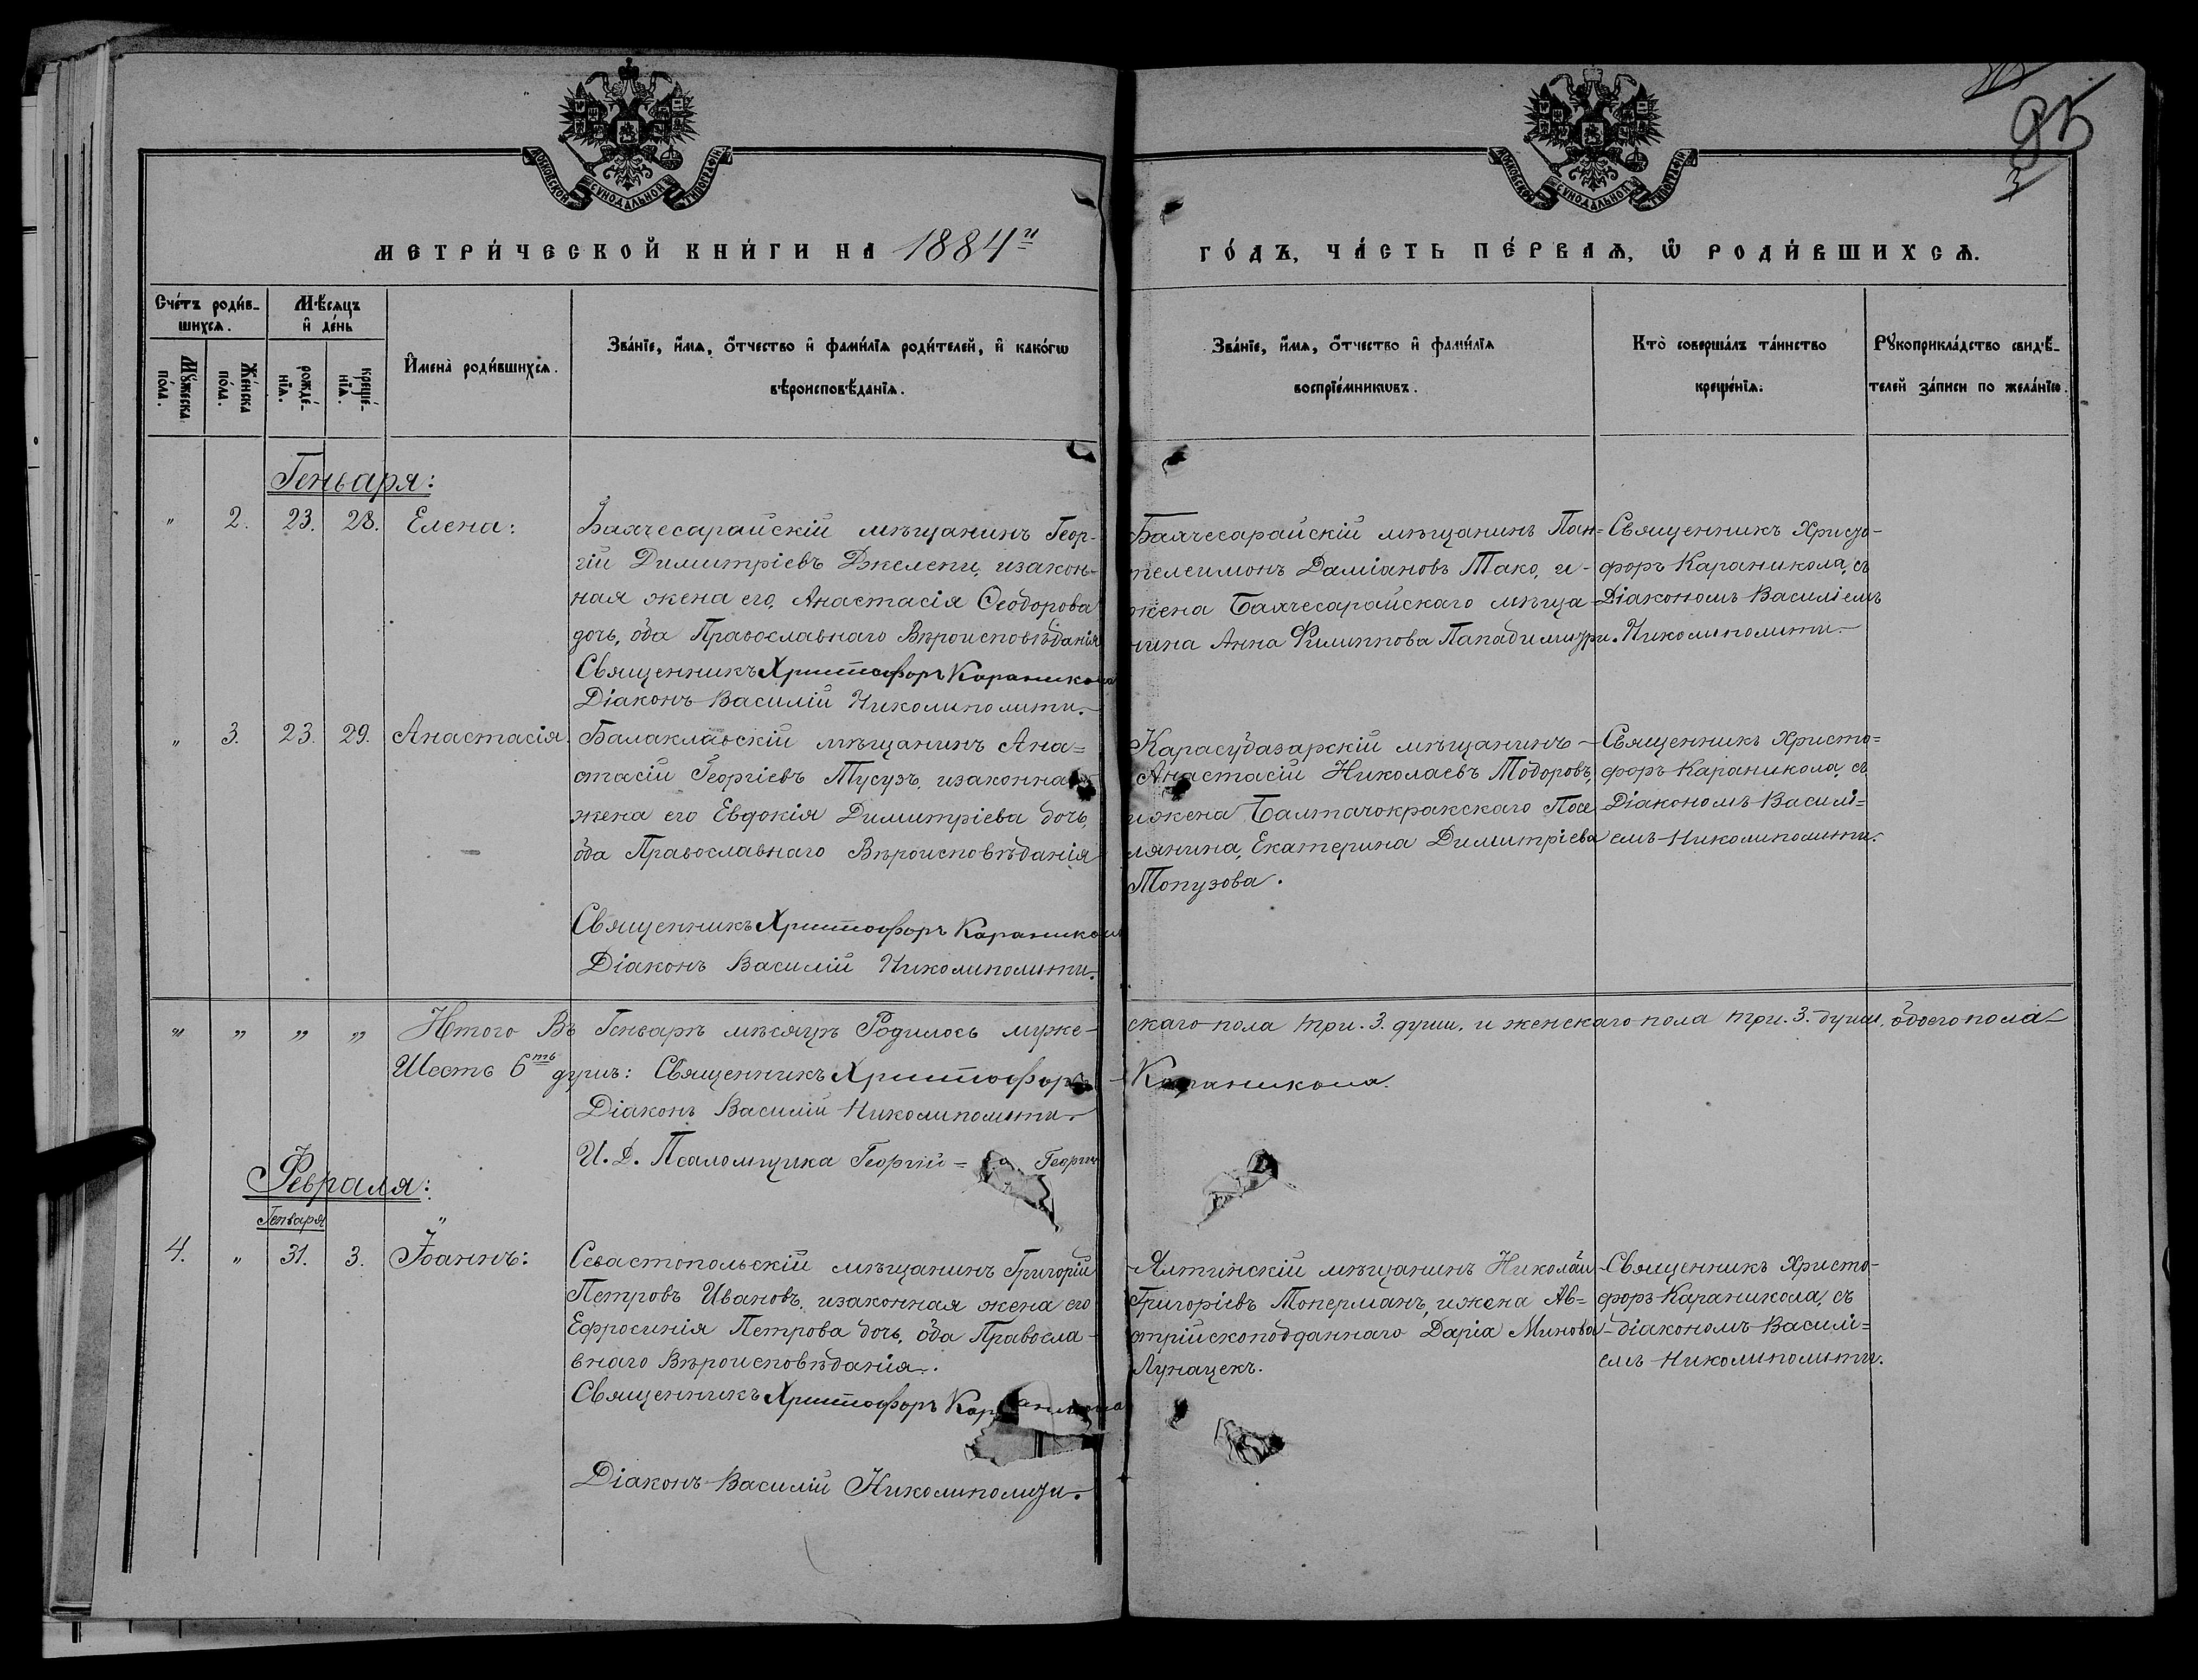 МОСКОВСКОЙ СУНОДАЛЬНОЙ ТИПОГРАФІИ
МОСКОВСКОЙ СУНОДАЛЬНОЙ ТИПОГРАФІИ
95
3
МЕТРИ́ЧЕСКОЙ КНИ́ГИ НА 1884й
ГО́ДЪ, ЧА́СТЬ ПЕ́РВАѦ, Ѿ РОДИ́ВШИХСѦ.
Сче́тъ роди́в-
шихсѧ.
Мꙋ́жеска по́ла.
Же́нска по́ла.
Мѣ́сяцъ
и҆ де́нь
рожде́-
нїѧ.
креще́-
нїѧ.
И҆мена̀ роди́вшихсѧ.
Зва́нїе, и҆́мѧ, о҆́тчество и҆ фами́лїѧ роди́телей, и҆ како́гѡ
вѣроисповѣ́данїѧ.
Зва́нїе, и҆́мѧ, о҆́тчество и҆ фами́лїѧ
воспрїе́мникѡвъ.
Кто̀ соверша́лъ та́инство
креще́нїѧ.
Рꙋкоприкла́дство свидѣ́-
телей за́писи по жела́нїю.
Генваря:
" 2. 23. 28. Елена:
Бахчесарайскій мѣщанинъ Геор-
гій Димитріевъ Джелепи, изакон-
ная жена его, Анастасія Ѳеодорова
дочь, оба Православнаго Вѣроисповѣданія
Священникъ Христофоръ Караникола
Діаконъ Василій Николиполити.
Бахчесарайскій мѣщанинъ Пан=
телеимонъ Даміановъ Тако, и-
жена Бахчесарайскаго мѣща-
нина Анна Филиппова Пападимитри.
Священникъ Христо-
форъ Караникола, съ
Діакономъ Василіемъ
Николиполити.
" 3. 23. 29. Анастасія.
Балаклавскій мѣщанинъ Ана=
стасій Георгіевъ Тусузъ, изаконная
жена его Евдокія Димитріева дочь,
оба Православнаго Вѣроисповѣданія
Священникъ Христофоръ Караникола
Діаконъ Василій Николиполити.
Карасубазарскій мѣщанинъ-
Анастасій Николаевъ Тодоровъ,
ижена Балтачокракскаго Посе
лянина, Екатерина Димитріева
Топузова.
Священникъ Христо=
форъ Караникола, съ
Діакономъ Васили=
емъ Николиполити.
" " " " Итого Въ Генварѣ мѣсяцѣ Родилось муже-
скаго пола три. 3. души. и женскаго пола три. 3. души, обоего пола-
Шесть 6ть душъ: Священникъ Христофоръ-
Караникола.
Діаконъ Василій Николиполити
И. Д. Псаломщика Георгій = Георги
Февраля:
Генваря "
4. " 31. 3. Іоаннъ:
Севастопольскій мѣщанинъ Григорій
Петровъ Ивановъ, изаконная жена его
Ефросинія Петрова дочь, оба Правосла-
внаго Вѣроисповѣданія.
Священникъ Христофоръ Караникола
Діаконъ Василій Николиполити.
Ялтинскій мѣщанинъ Николай
Григоріевъ Топерманъ, ижена Ав=
стрійскоподданнаго Дарія Минова
Лунацекъ.
Священникъ Христо-
форъ Караникола, съ
діакономъ Васили=
емъ Николиполити.